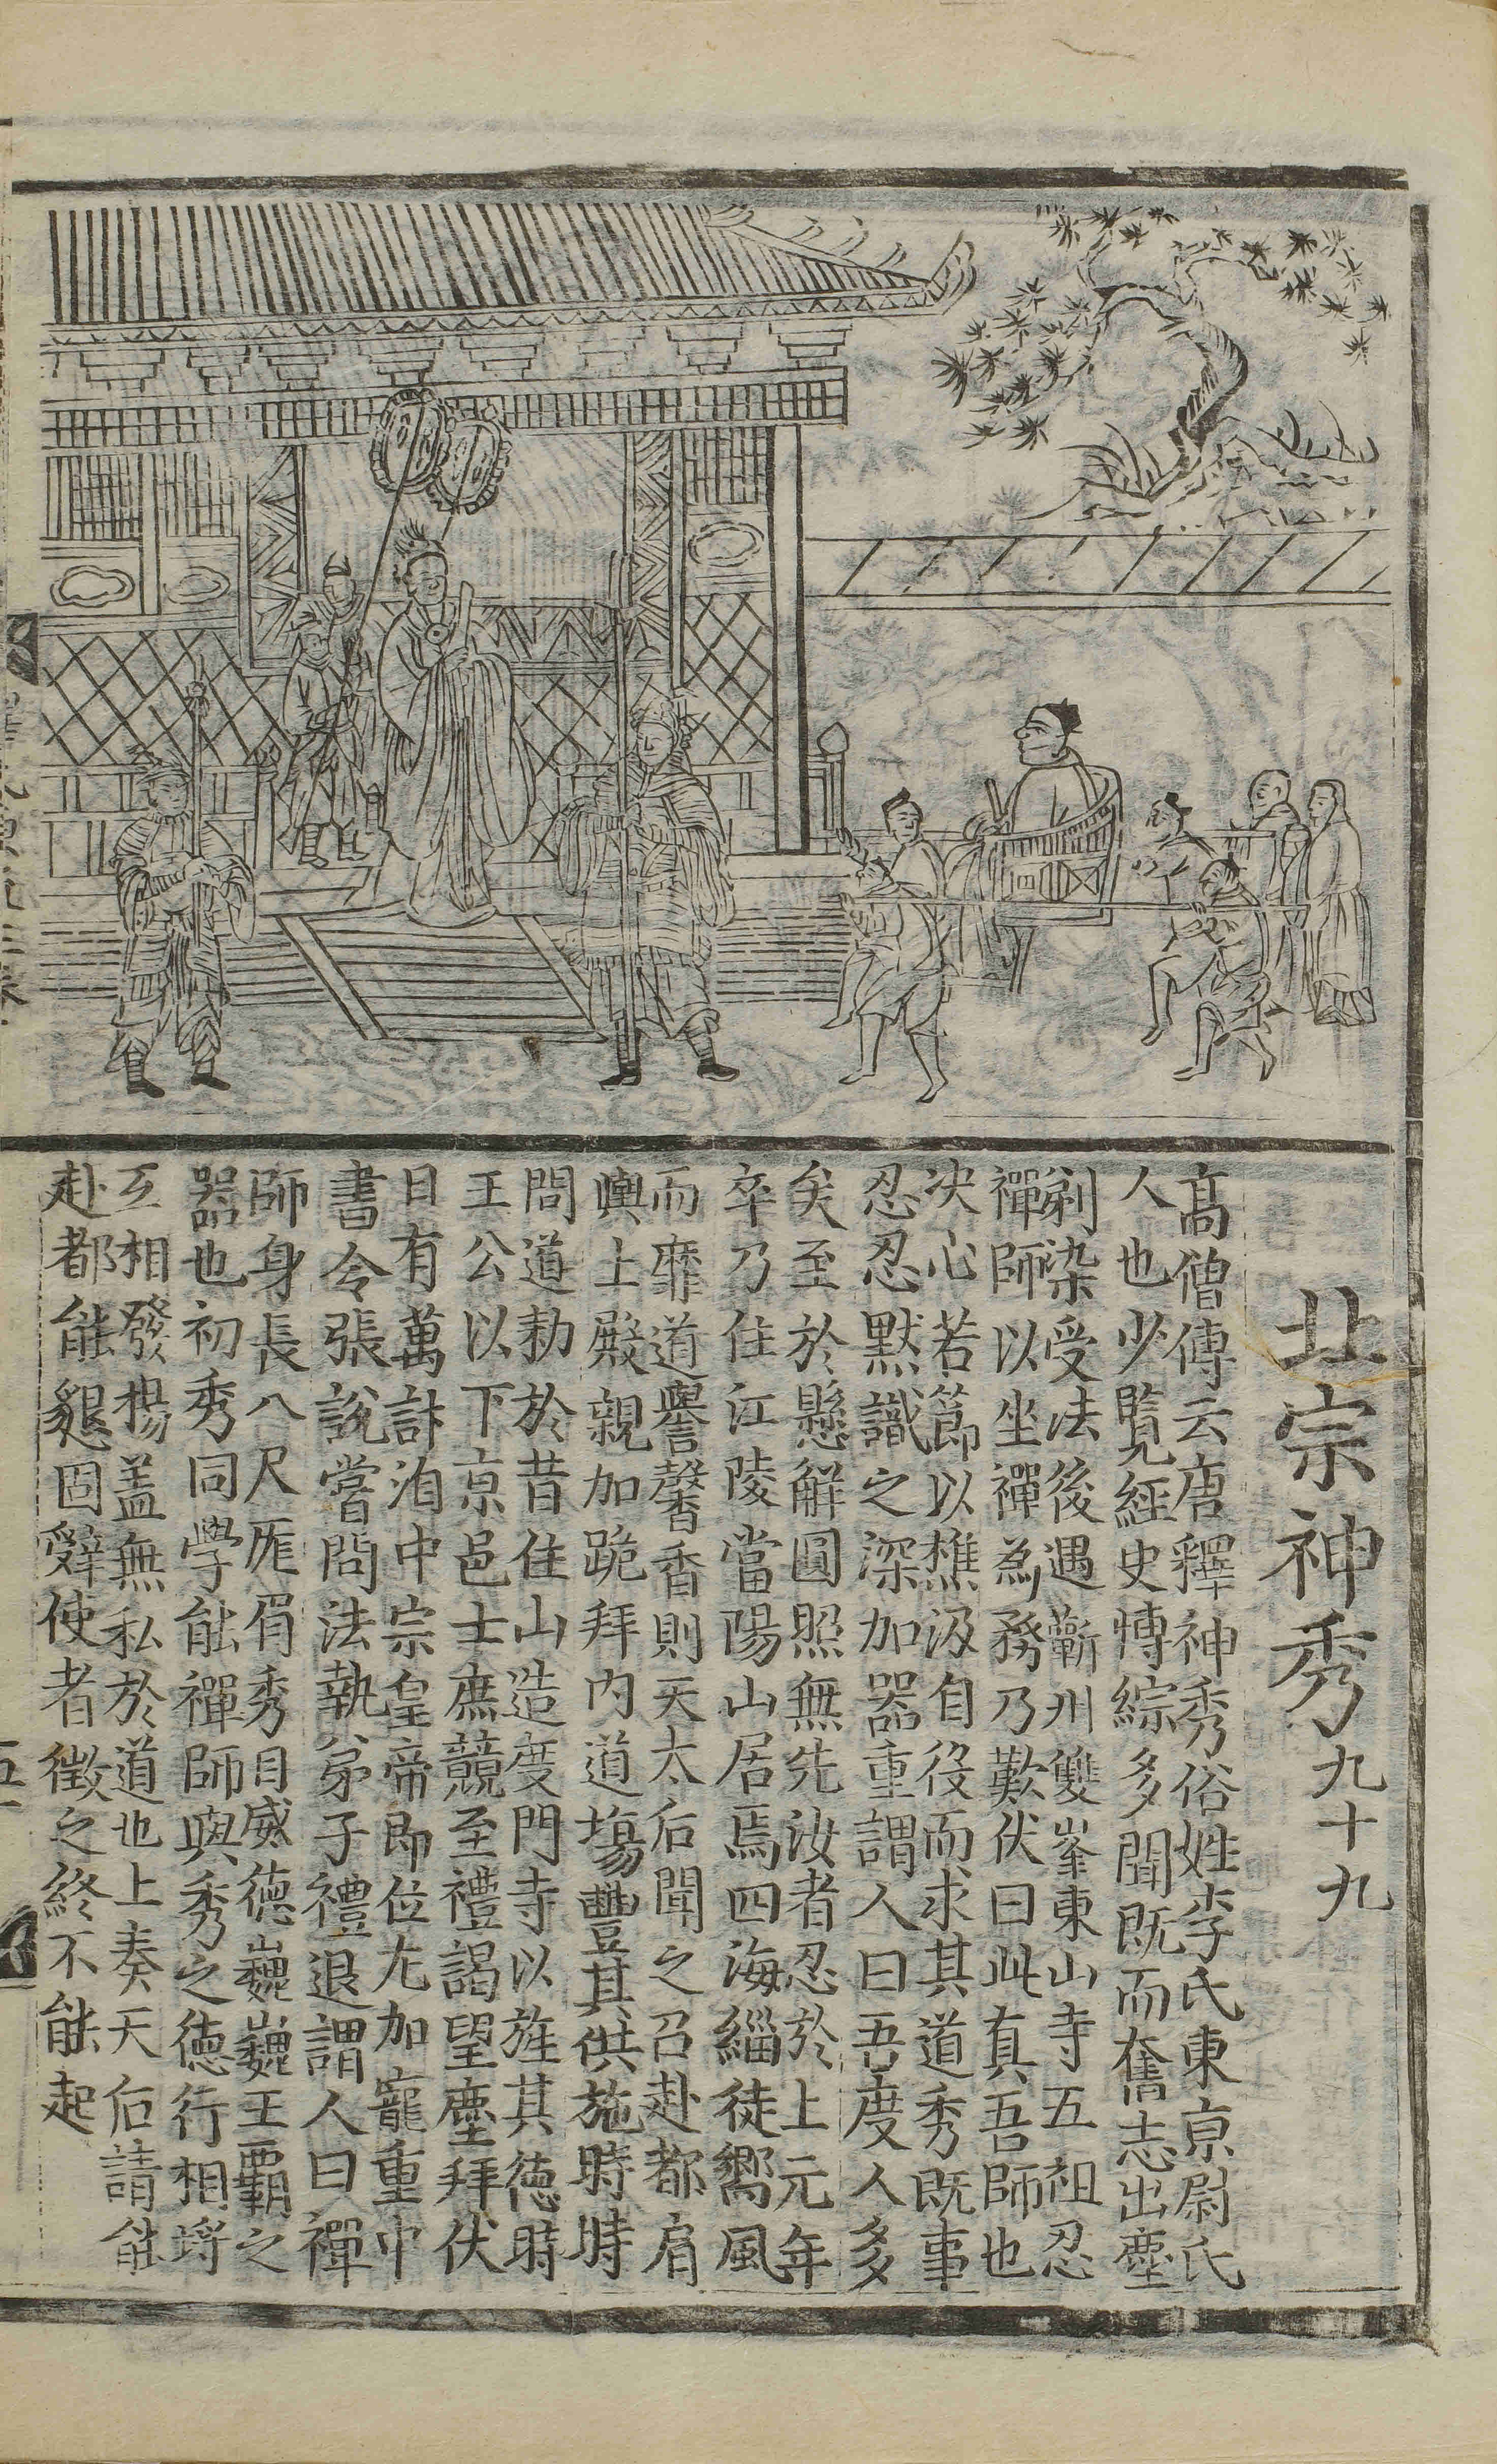 北宗神秀九十九
高僧傳云唐釋神秀俗姓李氏東京尉氏
人也少覧經史博綜多聞既而奮志出塵
剃染受法後遇蘄州雙峯東山寺五祖忍
禪師以坐禪為務乃歎伏曰此真吾師也
决心若節以樵汲自役而求其道秀既事
忍忍默識之深加器重謂人曰吾度人多
矣至於懸解圓照無先汝者忍於上元年
卒乃住江陵當陽山居焉四海緇徒嚮風
而靡道譽馨香則天太后聞之召赴都肩
輿上殿親加跪拜内道塲豐其供施時時
問道勑於昔住山造度門寺以旌其德時
王公以下京邑士庶競至禮謁望塵拜伏
日有萬計洎中宗皇帝即位尤加寵重中
書令張說嘗問法執弟子禮退謂人曰禪
師身長八尺厖眉秀目威德巍巍王覇之
器也初秀同學能禪師與秀之德行相埒
互相發揚盖無私於道也上奏天后請能
赴都能懇固辭使者徵之終不能起